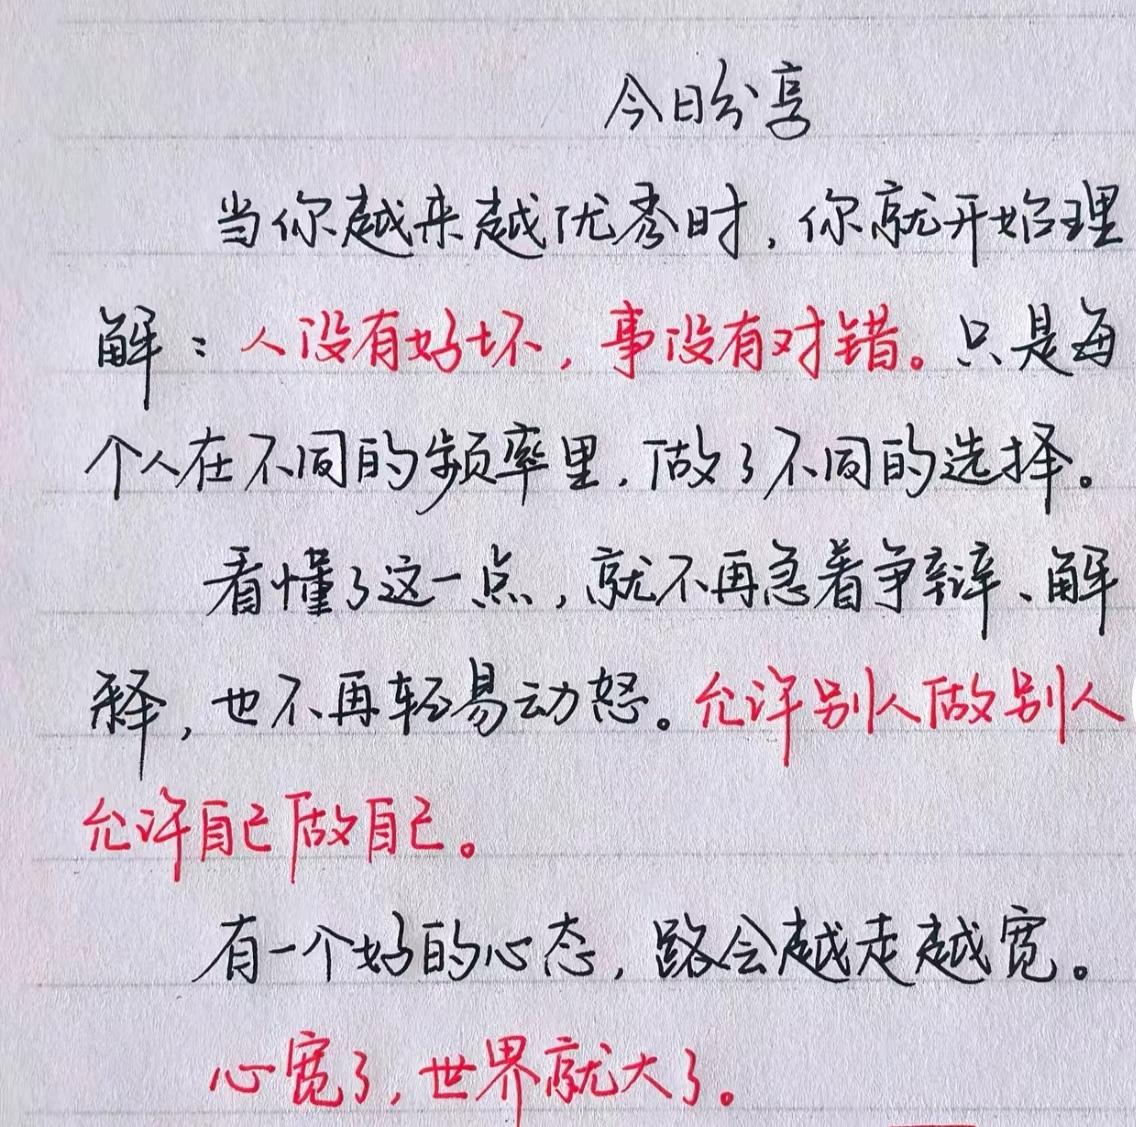 今日分享
当你越来越优秀时，你就开始理
解：人没有好坏，事没有对错。只是每
个人在不同的频率里，做了不同的选择。
看懂了这一点，就不再急着争辩、解
释，也不再轻易动怒。允许别人做别人
允许自己做自己。
有一个好的心态，路会越走越宽。
心宽了，世界就大了。